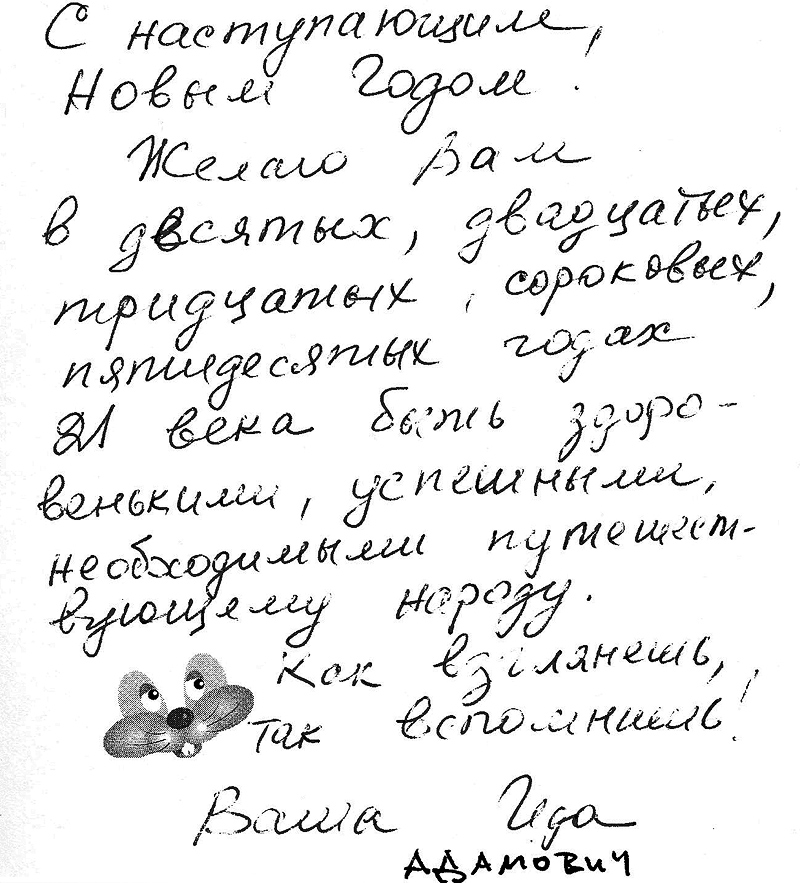 С наступающим,
Новым Годом.
Желаю Вам
в десятых, двадцатых,
тридцатых, сороковых,
пятидесятых годах
21 века быть здоро-
венькими, успешными,
необходимыми путешест-
вующему народу.
Как взглянешь,
так вспомнишь!
Ваша Ида
АДАМОВИЧ